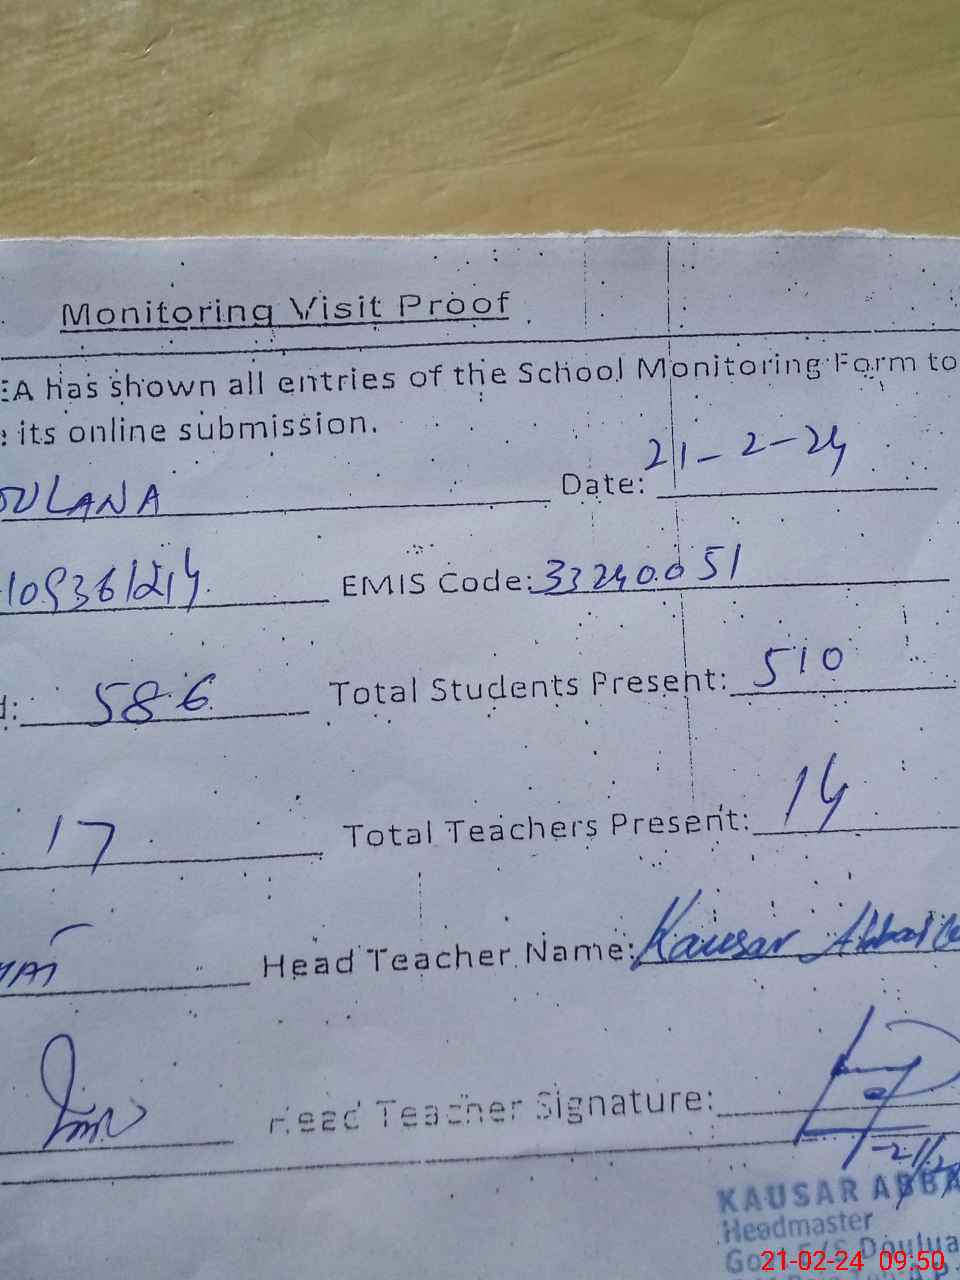 Monitoring Visit Proof
EA has shown all entries of the School Monitoring Form to
its online submission.
OULANA Date: 21-2-24
EMIS Code: 33240051
586 Total Students Present: 510
17 Total Teachers Present: 14
Head Teacher Name: Kausar Abbas
Head Teacher Signature:
KAUSAR ABBA
Headmaster
Govt E/S Doulua
21-02-24 09:50